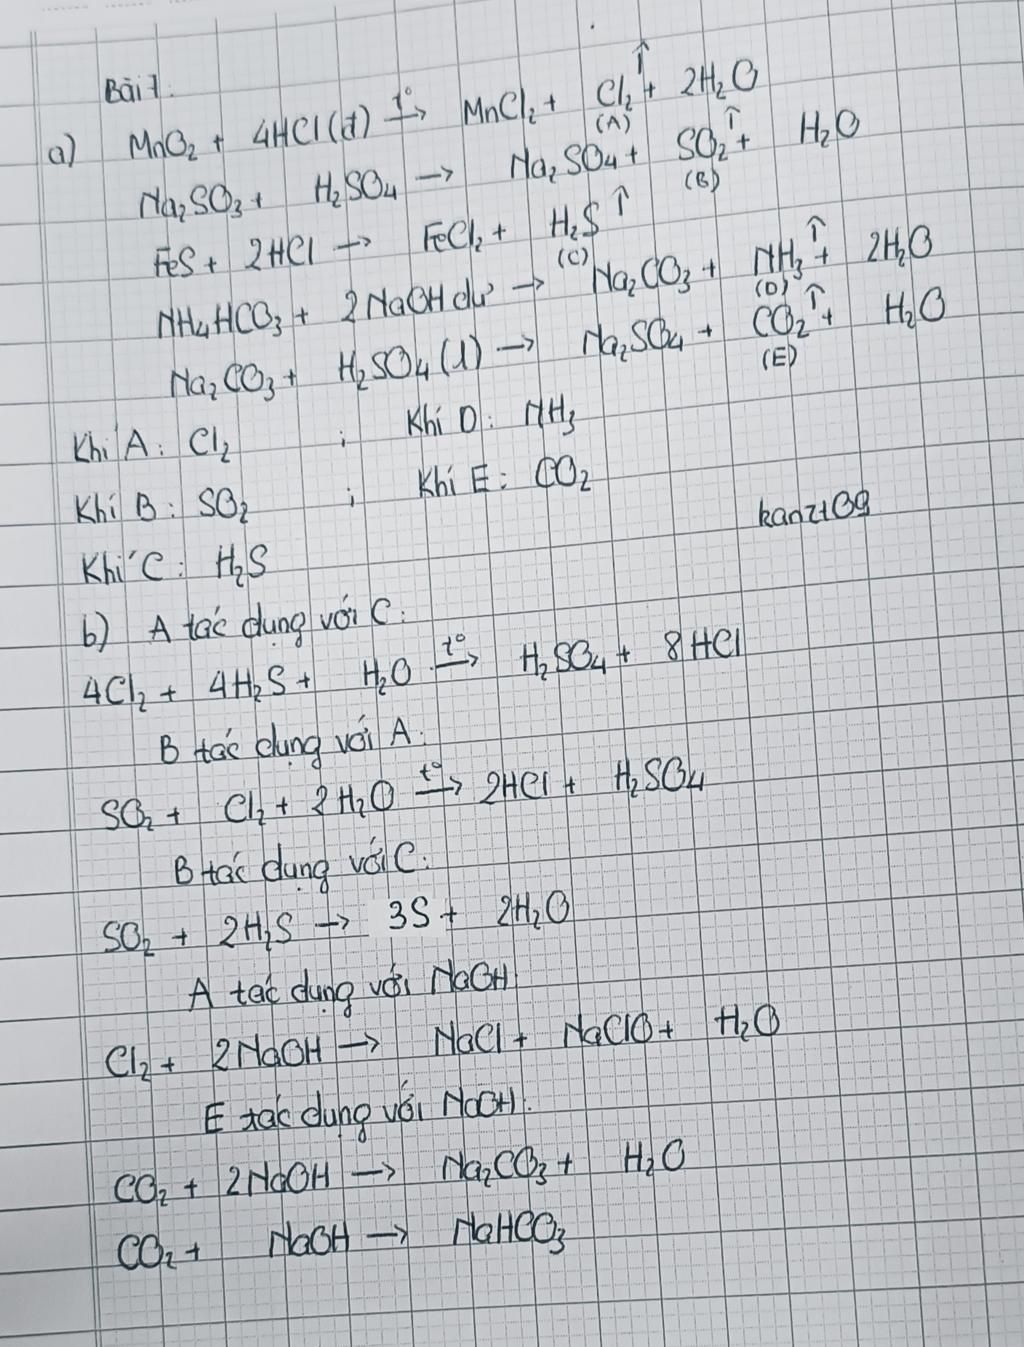 Bài 1:
a) MnO₂ + 4HCl(đ) →(t°) MnCl₂ + Cl₂↑ + 2H₂O
(A)
Na₂SO₃ + H₂SO₄ → Na₂SO₄ + SO₂↑ + H₂O
(B)
FeS + 2HCl → FeCl₂ + H₂S↑
(C)
NH₄HCO₃ + 2NaOH dư → Na₂CO₃ + NH₃↑ + 2H₂O
(D)
Na₂CO₃ + H₂SO₄(l) → Na₂SO₄ + CO₂↑ + H₂O
(E)
Khí A: Cl₂ ; Khí D: NH₃
Khí B: SO₂ ; Khí E: CO₂
kanzt09
Khí C: H₂S
b) A tác dụng với C:
4Cl₂ + 4H₂S + H₂O →(t°) H₂SO₄ + 8HCl
B tác dụng với A:
SO₂ + Cl₂ + 2H₂O →(t°) 2HCl + H₂SO₄
B tác dụng với C:
SO₂ + 2H₂S → 3S + 2H₂O
A tác dụng với NaOH:
Cl₂ + 2NaOH → NaCl + NaClO + H₂O
E tác dụng với NaOH:
CO₂ + 2NaOH → Na₂CO₃ + H₂O
CO₂ + NaOH → NaHCO₃